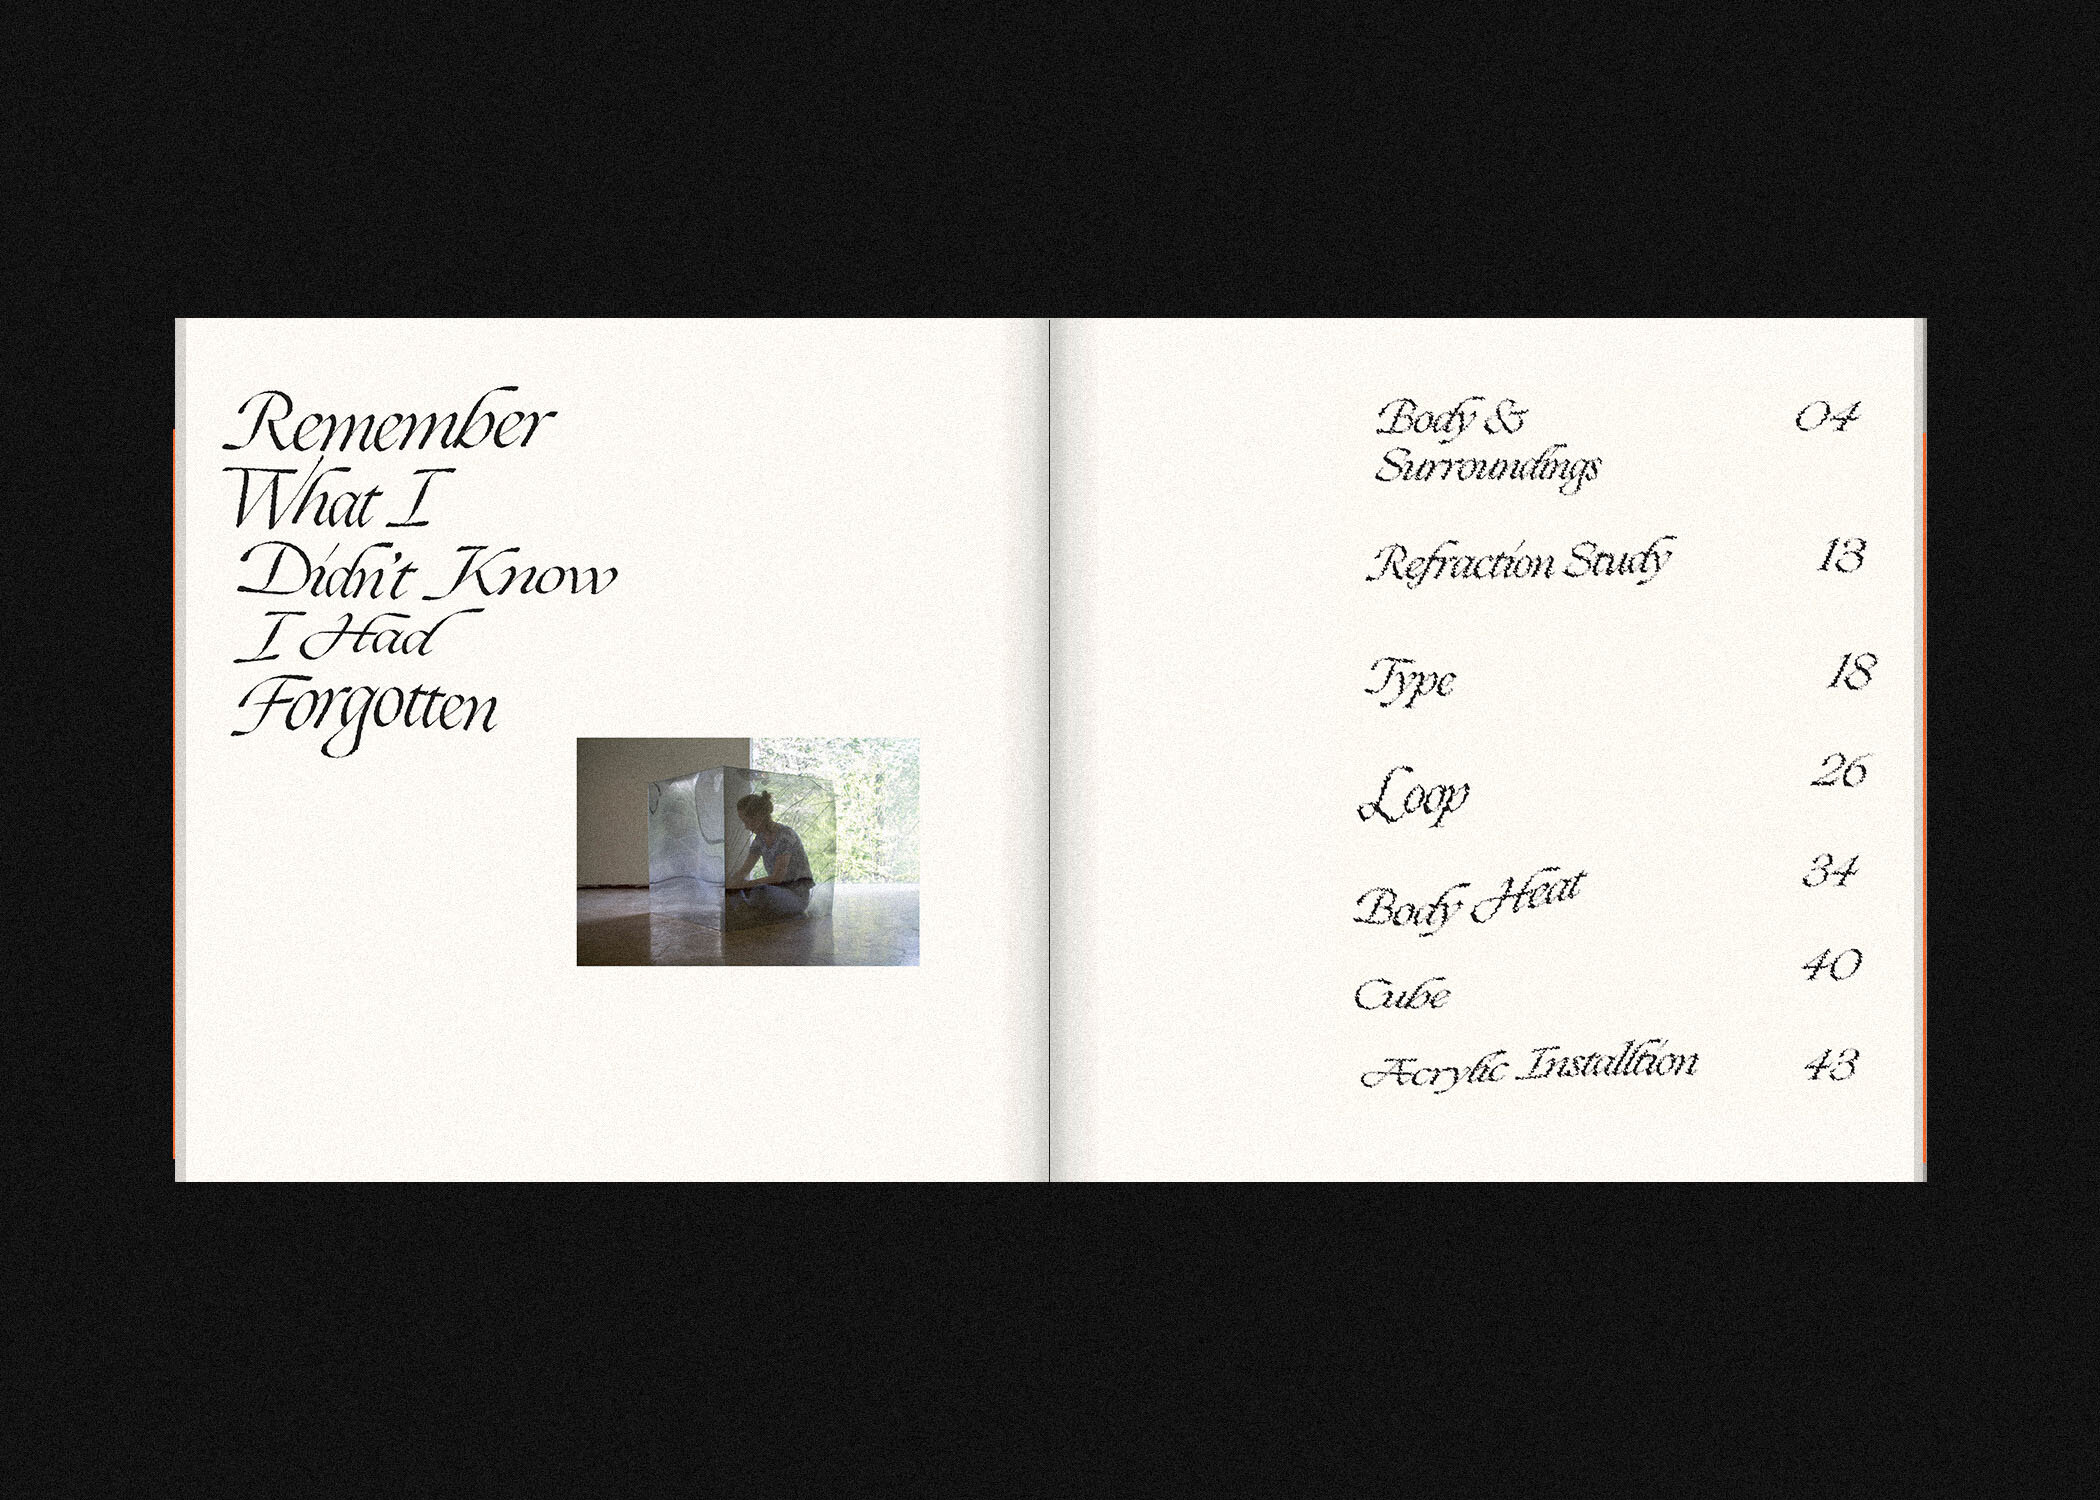 Remember
What I
Didn't Know
I Had
Forgotten
Body & 04
Surroundings
Refraction Study 13
Type 18
Loop 26
Body Heat 34
Cube 40
Acrylic Installtion 43